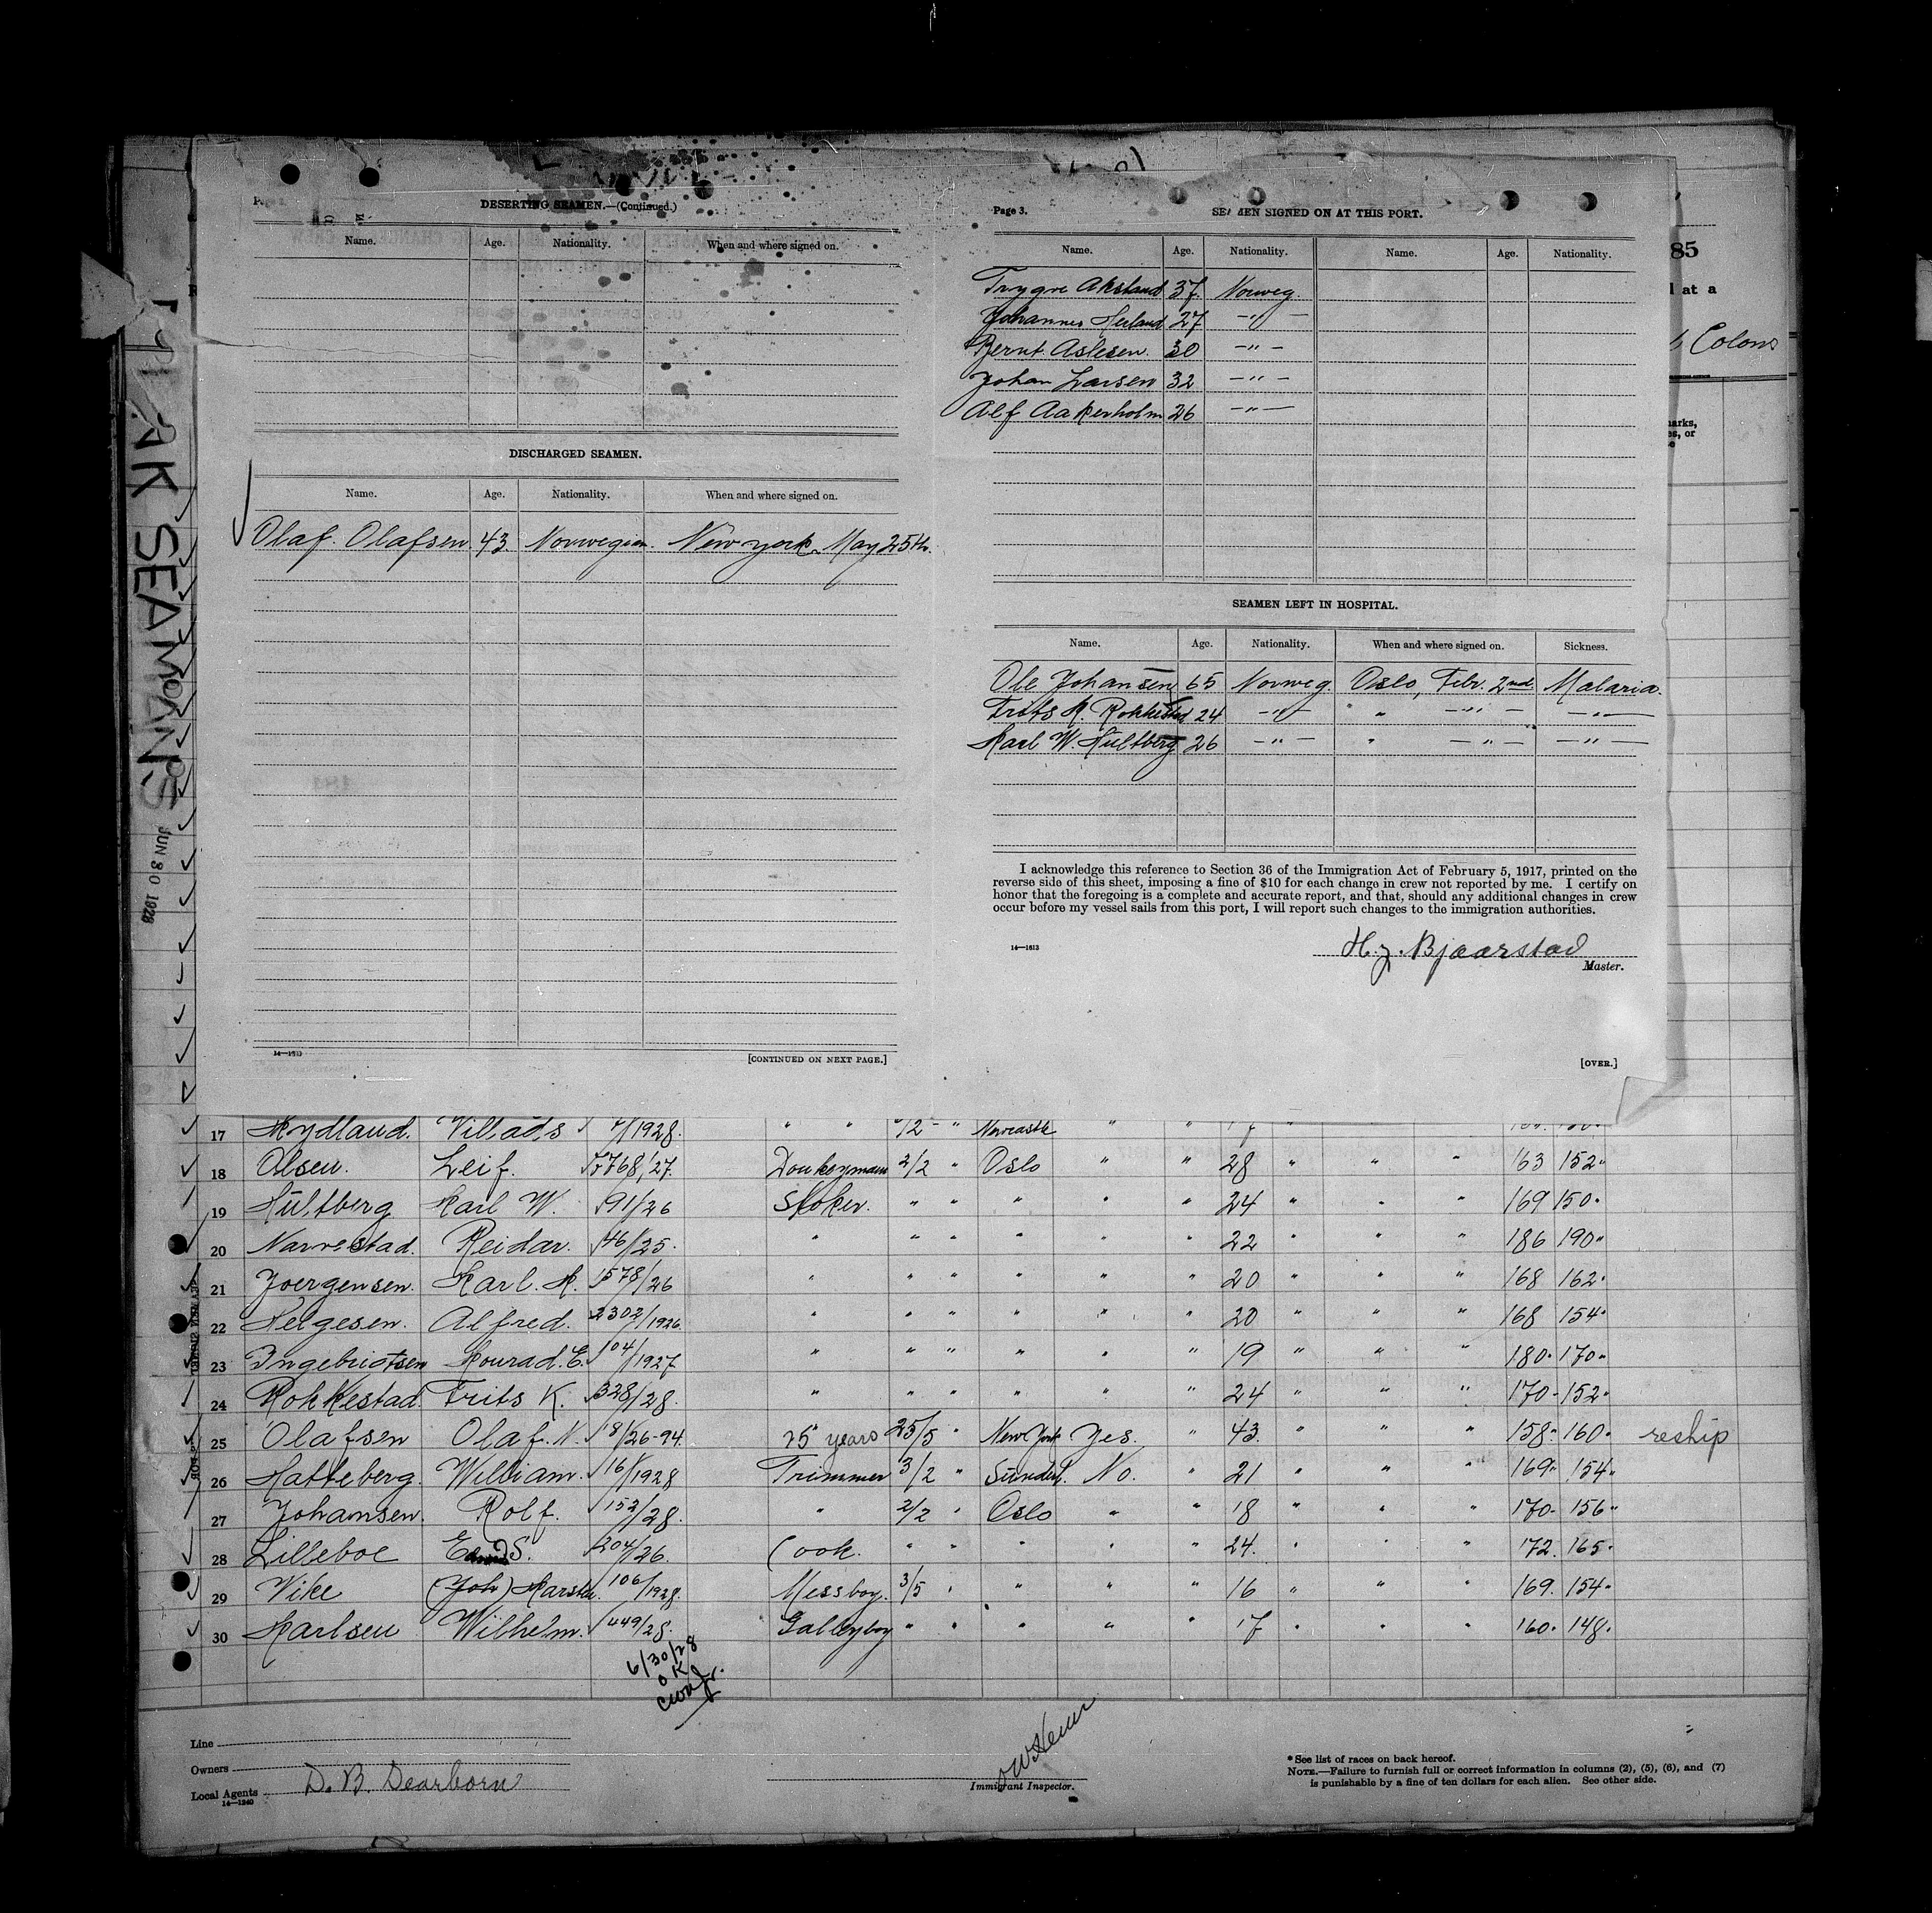 DESERTING SEAMEN.—(Continued.)
Name. Age. Nationality. When and where signed on.
DISCHARGED SEAMEN.
Name. Age. Nationality. When and where signed on.
Olaf Olafsen 43 Norwegian. New York. May 25th.
14—1613
[CONTINUED ON NEXT PAGE.]
Page 3.
SEAMEN SIGNED ON AT THIS PORT.
Name. Age. Nationality. Name. Age. Nationality.
Trygve Aksland 37. Norweg.
Johannes Heiland 27 —"—
Bernt Aslesen. 30 —"—
Johan Larsen 32 —"—
Alf Aakerholm 26 —"—
SEAMEN LEFT IN HOSPITAL.
Name. Age. Nationality. When and where signed on. Sickness.
Ole Johansen 65 Norweg Oslo, Febr. 2nd Malaria.
Frits K. Rokkestad 24 —"— " —"— —"—
Karl W. Hultberg 26 —"— " —"— —"—
I acknowledge this reference to Section 36 of the Immigration Act of February 5, 1917, printed on the
reverse side of this sheet, imposing a fine of $10 for each change in crew not reported by me. I certify on
honor that the foregoing is a complete and accurate report, and that, should any additional changes in crew
occur before my vessel sails from this port, I will report such changes to the immigration authorities.
14—1613
H. J. Bjaarstad
Master.
[OVER.]
85
at a
Colon
SEAMAN'S
JUN 30 1928
17 Rydland. Villads 7/1928. " " 6/2 - " Newcastle " " 17 "
18 Olsen. Leif. 768/27. Donkeyman 2/2 " Oslo " " 28 " " " 163 152"
19 Hultberg Karl W. 91/26 Stoker. " " " " " 24 " " " 169 150"
20 Narvestad. Reidar. 46/25. " " " " " " 22 " " " 186 190"
21 Joergensen. Karl. H. 1578/26 " " " " " " 20 " " " 168 162"
22 Helgesen. Alfred. 2302/1926. " " " " " " 20 " " " 168 154"
23 Ingebrigtsen Konrad. E. 104/1927 " " " " " " 19 " " " 180" 170"
24 Rokkestad Frits K. 328/28. " " " " " " 24 " " " 170- 152"
25 Olafsen Olaf. N. 18/26-94. 25 years 25/5 " New York Yes. " 43. " " " 158" 160" reship
26 Hatteberg. William. 16/1928 Trimmer 3/2 " Sunderl. No. " 21 " " " 169" 154"
27 Johansen. Rolf. 152/28. " 2/2 " Oslo " " 18 " " " 170- 156"
28 Lilleboe S. 204/26. Cook. " " " " " 24. " " " 172. 165"
29 Vike (Joh) Karsten. 106/1928. Messboy. 3/5 " " " " 16 " " " 169. 154"
30 Karlsen Wilhelm. 449/28. Galleyboy " " " " " 17 " " " 160" 148"
6/30/28
OK
Line
Owners
Local Agents D. B. Dearborn
14—1240
Immigrant Inspector.
* See list of races on back hereof.
NOTE.—Failure to furnish full or correct information in columns (2), (5), (6), and (7)
is punishable by a fine of ten dollars for each alien. See other side.